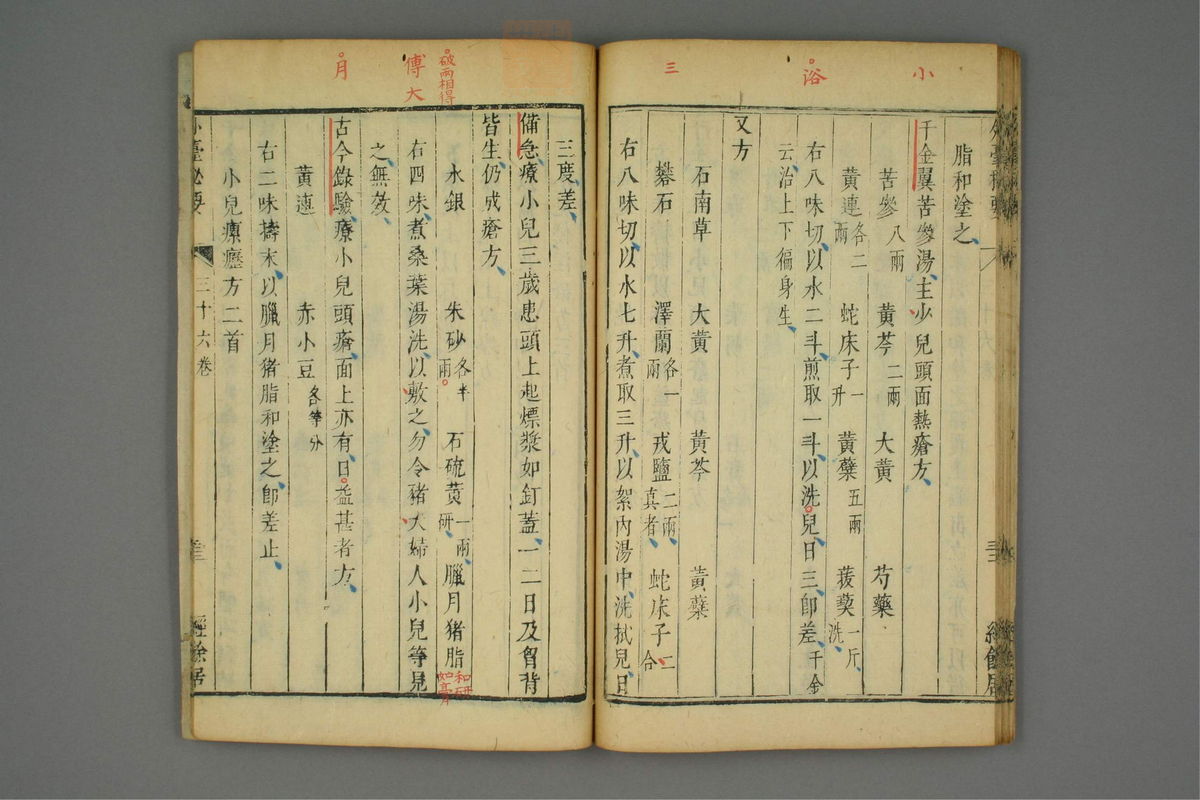 小
浴
三
脂和塗之
千金翼苦參湯主少兒頭面熱瘡方
苦參八兩 黃芩二兩 大黃 芍藥
黃連各二兩 蛇床子一升 黃蘗五兩 菝葜一斤洗
右八味切以水二斗煎取一斗以洗兒日三卽差千金
云治上下徧身生
又方
石南草 大黃 黃芩 黃蘗
礬石 澤蘭各一兩 戎鹽二兩真者 蛇床子二合
右八味切以水七升煮取三升以絮內湯中洗拭兒日
破兩相得
傅
大
月
三度差
備急療小兒三歲患頭上起熛漿如釘蓋一二日及胷背
皆生仍成瘡方
水銀 朱砂各半兩 石硫黃一兩研 臘月猪脂和研如膏
右四味煮桑葉湯洗以敷之勿令猪犬婦人小兒等見
之無效
古今錄驗療小兒頭瘡面上亦有日益甚者方
黃連 赤小豆各等分
右二味擣末以臘月猪脂和塗之卽差止
小兒瘰癧方二首
臺祕要 三十六卷 經餘居